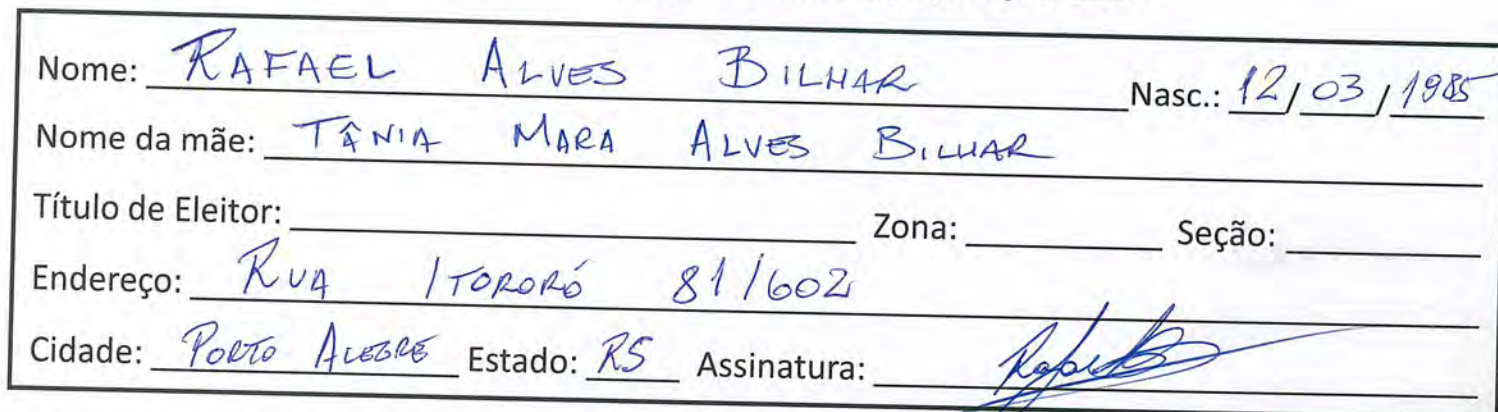 Nome: RAFAEL ALVES BILHAR Nasc.: 12/03/1985
Nome da mãe: TÂNIA MARA ALVES BILHAR
Título de Eleitor: Zona: Seção:
Endereço: RUA ITORORÓ 81/602
Cidade: PORTO ALEGRE Estado: RS Assinatura: